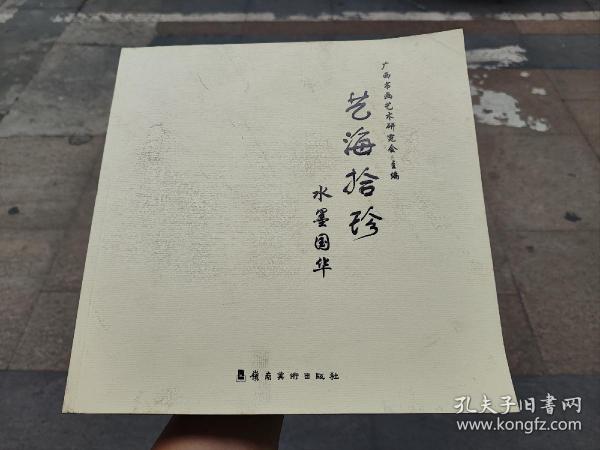 广西书画艺术研究会·主编
艺海拾珍
水墨国华
嶺南美術出版社
孔夫子旧书网
www.kongfz.com